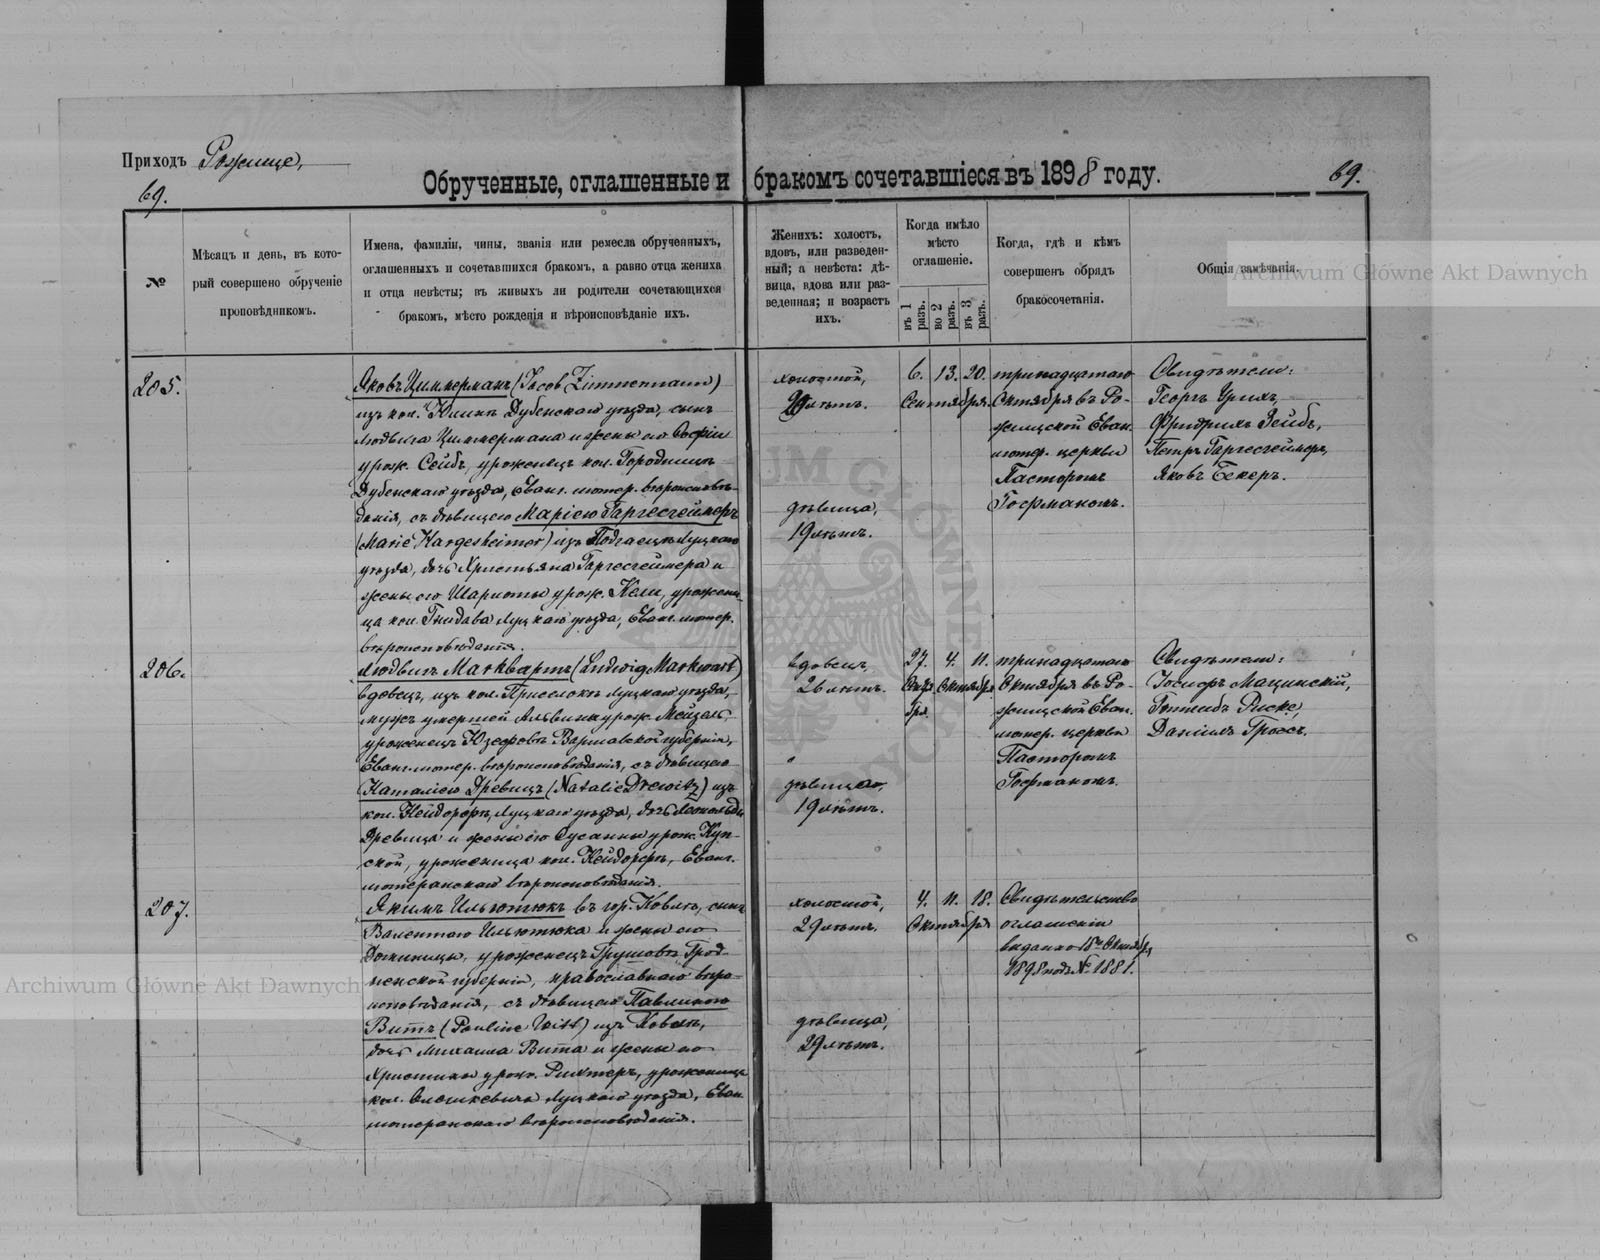 Приходъ Рожище,
69.
Обрученные, оглашенные и бракомъ сочетавшіеся въ 1898 году.
69.
№
Мѣсяцъ и день, въ кото-
рый совершено обрученіе
проповѣдникомъ.
Имена, фамиліи, чины, званія или ремесла обрученныхъ,
оглашенныхъ и сочетавшихся бракомъ, а равно отца жениха
и отца невѣсты; въ живыхъ ли родители сочетающихся
бракомъ, мѣсто рожденія и вѣроисповѣданіе ихъ.
Женихъ: холостъ,
вдовъ, или разведен-
ный; а невѣста: дѣ-
вица, вдова или раз-
веденная; и возрастъ
ихъ.
Когда имѣло
мѣсто
оглашеніе.
въ 1 разъ.
во 2 разъ.
въ 3 разъ.
Когда, гдѣ и кѣмъ
совершенъ обрядъ
бракосочетанія.
Общія замѣчанія.
205.
Яковъ Циммерманъ (Jacob Zimmermann)
изъ кол. Юлинъ Дубенскаго уѣзда, сынъ
Людвига Циммермана и жены его Софіи
урож. Сейбъ, уроженецъ кол. Городница
Дубенскаго уѣзда, Еванг. лютер. вѣроисповѣ-
данія, съ дѣвицею Маріею Гаргесгеймеръ
(Marie Hargesheimer) изъ Подгаецъ Луцкаго
уѣзда, дочь Христьяна Гаргесгеймера и
жены его Шарлоты урож. Кели, урожени-
ца кол. Гнидава Луцкаго уѣзда, Еванг. лютер.
вѣроисповѣданія.
холостой,
29 лѣтъ.
дѣвица,
19 лѣтъ.
6. 13. 20.
Сентября.
тринадцатаго
Октября въ Ро-
жищской Еван.
лютер. церкви
Пасторомъ
Госрманомъ.
Свидѣтели:
Георгъ Ульихъ,
Фридрихъ Зейбъ,
Петръ Гаргесгеймеръ,
Яковъ Бекеръ.
206.
Людвигъ Марквартъ (Ludwig Markwart)
вдовецъ, изъ кол. Пршелокъ Луцкаго уѣзда,
мужъ умершей Альвины урож. Мейзель,
уроженецъ Юзефовъ Варшавской губерніи,
Еванг. лютер. вѣроисповѣданія, съ дѣвицею
Наталіею Древицъ (Natalie Drewitz) изъ
кол. Нейдорфъ, Луцкаго уѣзда, дочь Леопольда
Древица и жены его Сусанны урож. Куп-
ской, уроженица кол. Нейдорфъ, Еванг.
лютеранскаго вѣроисповѣданія.
вдовецъ,
26 лѣтъ.
дѣвица,
19 лѣтъ.
27. 4. 11.
Сентя Октября
бря.
тринадцатаго
Октября въ Ро-
жищской Еван.
лютер. церкви
Пасторомъ
Госрманомъ.
Свидѣтели:
Іосифъ Мацинскій,
Готлибъ Риске,
Даніилъ Гроссъ.
207.
Якимъ Ильютюкъ въ гор. Ковлѣ, сынъ
Валентого Ильютюка и жены его
Доминицы, уроженецъ Грушовъ Грод-
ненской губерніи, православнаго вѣро-
исповѣданія, съ дѣвицею Павлиною
Витъ (Pauline Witt) изъ Ковля,
дочь Михаила Вита и жены его
Христины урож. Рихтеръ, уроженица
кол. Олешкевичъ Луцкаго уѣзда, Еван.
лютеранскаго вѣроисповѣданія.
холостой,
29 лѣтъ.
дѣвица,
29 лѣтъ.
4. 11. 18.
Октября
Свидѣтельство
оглашеніи
выдано 18го Октября
1898 подъ № 1881.
Archiwum Główne Akt Dawnych
Archiwum Główne Akt Dawnych